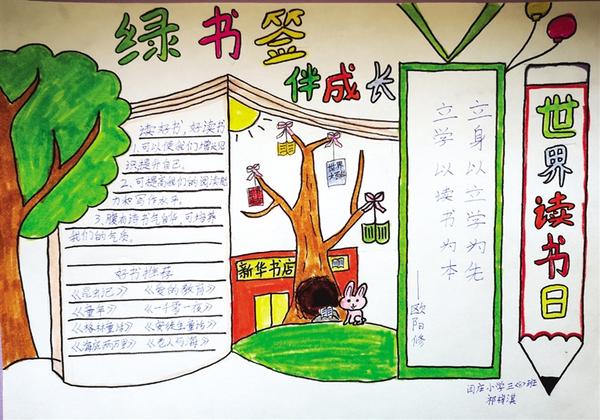 绿书签
伴成长
读好书,好读书
1.可以使我们增长知
识,提升自己。
2、可提高我们的阅读能
力和写作水平。
3.腹有诗书气自华,可培养
我们的气质。
好书推荐
《昆虫记》 《爱的教育》
《童年》 《一千零一夜》
《格林童话》 《安徒生童话》
《海底两万里》 《老人与海》
新华书店
立身以立学为先
立学以读书为本
——欧阳修
世界读书日
闫庄小学三(2)班